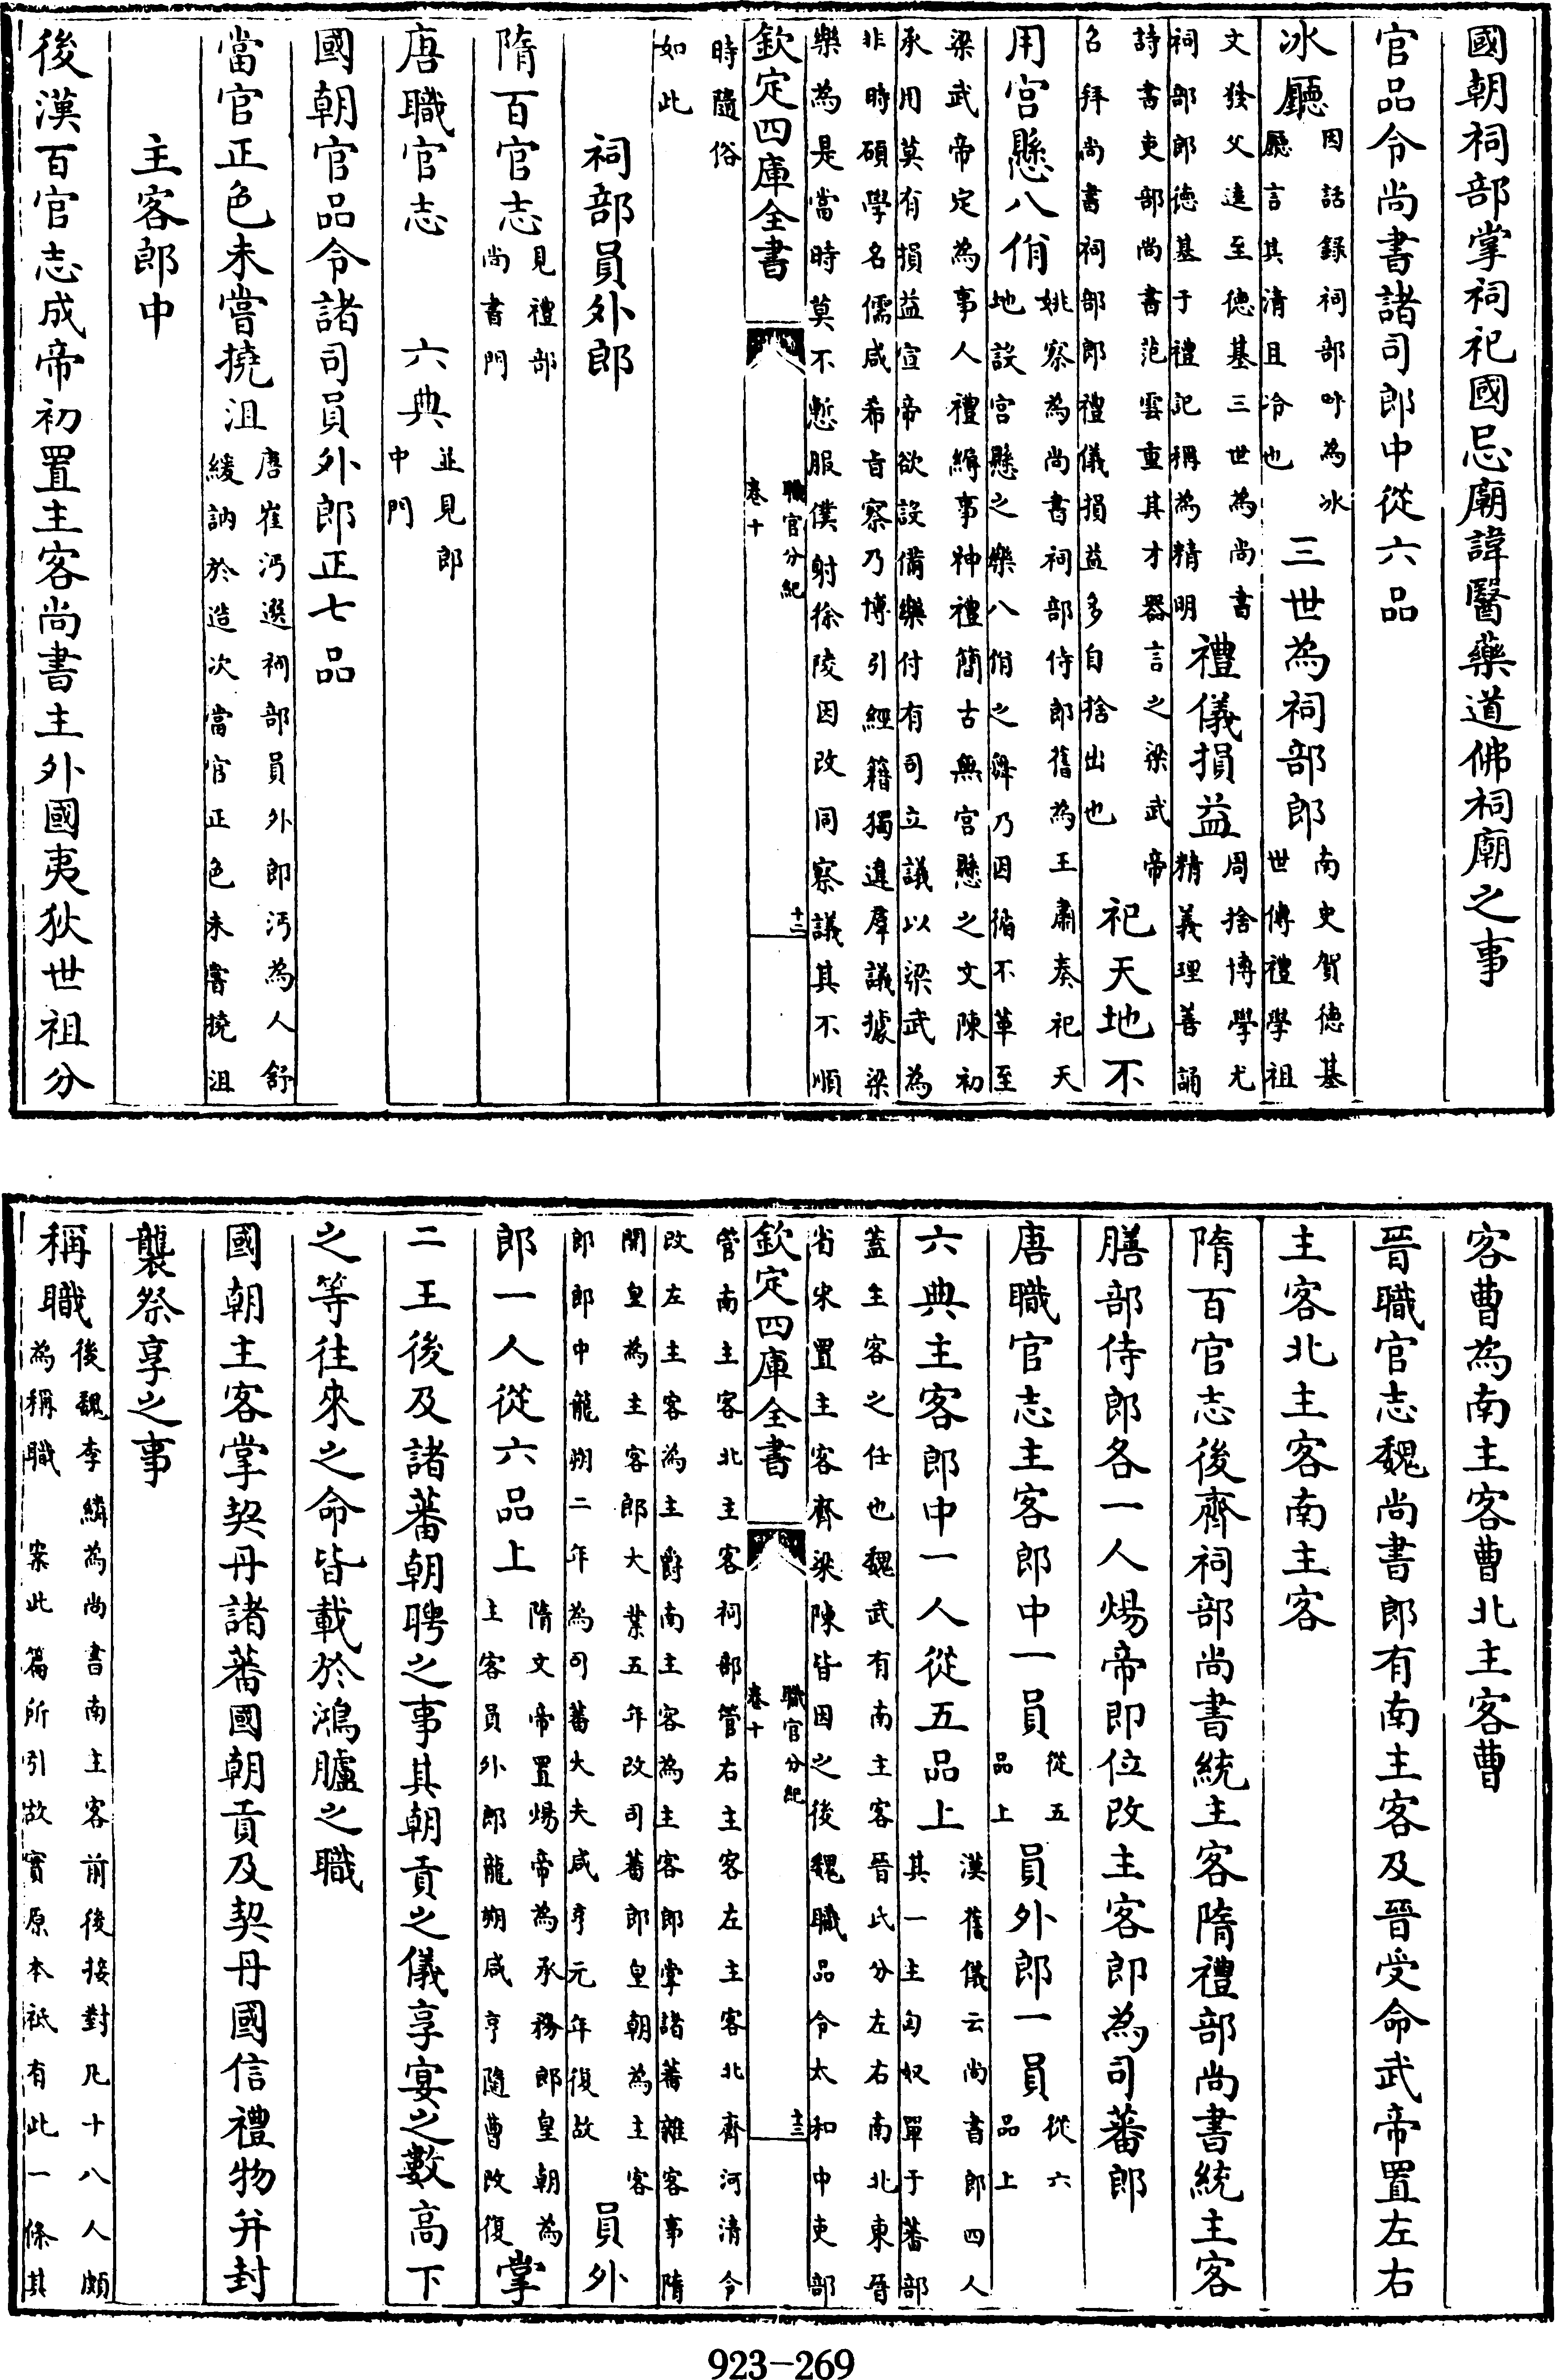 國朝祠部掌祠祀國忌廟諱醫藥道佛祠廟之事
官品令尚書諸司郎中從六品
冰廳因話錄祠部呼為冰廳言其清且冷也三世為祠部郎南史賀德基世傳禮學祖
文發父逵至德基三世為尚書祠部郎德基于禮記稱為精明禮儀損益周捨博學尤精義理善誦
詩書吏部尚書范雲重其才器言之梁武帝召拜尚書祠部郎禮儀損益多自捨出也祀天地不
用宮懸八佾姚察為尚書祠部侍郎舊為王肅奏祀天地設宮懸之樂八佾之舞乃因循不革至
梁武帝定為事人禮縟事神禮簡古無宮懸之文陳初承用莫有損益宣帝欲設備樂付有司立議以梁武為
非時碩學名儒咸希旨察乃博引經籍獨違羣議據梁樂為是當時莫不慙服僕射徐陵因改同察議其不順
欽定四庫全書
職官分紀
卷十
十二
時隨俗如此
祠部員外郎
隋百官志見禮部尚書門
唐職官志 六典並見郎中門
國朝官品令諸司員外郎正七品
當官正色未嘗撓沮唐崔沔遷祠部員外郎沔為人舒緩訥於造次當官正色未嘗撓沮
主客郎中
後漢百官志成帝初置主客尚書主外國夷狄世祖分
客曹為南主客曹北主客曹
晉職官志魏尚書郎有南主客及晉受命武帝置左右
主客北主客南主客
隋百官志後齊祠部尚書統主客隋禮部尚書統主客
膳部侍郎各一人煬帝即位改主客郎為司蕃郎
唐職官志主客郎中一員從五品上員外郎一員從六品上
六典主客郎中一人從五品上漢舊儀云尚書郎四人其一主匈奴單于蕃部
蓋主客之任也魏武有南主客晉氏分左右南北東晉省宋置主客齊梁陳皆因之後魏職品令太和中吏部
欽定四庫全書
職官分紀
卷十
十三
管南主客北主客祠部管右主客左主客北齊河清令改左主客為主爵南主客為主客郎掌諸蕃雜客事隋
開皇為主客郎大業五年改司蕃郎皇朝為主客郎郎中龍朔二年為司蕃大夫咸亨元年復故員外
郎一人從六品上隋文帝置煬帝為承務郎皇朝為主客員外郎龍朔咸亨隨曹改復掌
二王後及諸蕃朝聘之事其朝貢之儀享宴之數高下
之等往來之命皆載於鴻臚之職
國朝主客掌契丹諸蕃國朝貢及契丹國信禮物并封
襲祭享之事
稱職後魏李繗為尚書南主客前後接對凡十八人頗為稱職 案此篇所引故實原本祇有此一條其
923-269